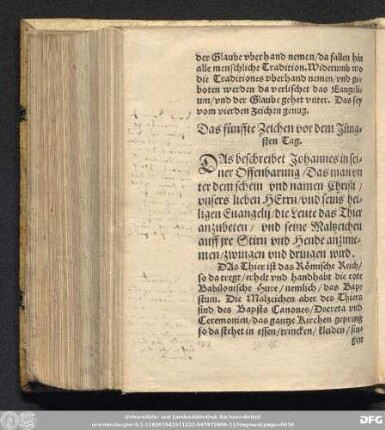 der Glaube vberhand nemen/da fallen hin
alle menschliche Tradition. Widerumb wo
die Traditiones vberhand nemen/vnd ge-
boten werden da verlischet das Euangeli-
um/vnd der Glaube gehet vnter. Das sey
vom vierden Zeichen genug.
Das fünffte Zeichen vor dem Jüng-
sten Tag.
DAs beschreibet Johannes in sei-
ner Offenbarung/Das man vn
ter dem schein vnd namen Christi/
vnsers lieben HErrn/vnd seins hei-
ligen Euangelij/die Leute das Thier
anzubeten/ vnd seine Malzeichen
auff jre Stirn vnd Hende anzune-
men/zwingen vnd dringen wird.
DAs Thier ist das Römische Reich/
so da tregt/erhelt vnd handhabt die rote
Babilonische Hure/nemlich/das Bap-
stum. Die Malzeichen aber des Thiers
sind des Bapsts Canones/Decreta vnd
Ceremonien/das gantze Kirchen gepreng
so da stehet in essen/trincken/kleiden/sin-
gen
Universitäts- und Landesbibliothek Sachsen-Anhalt
DFG